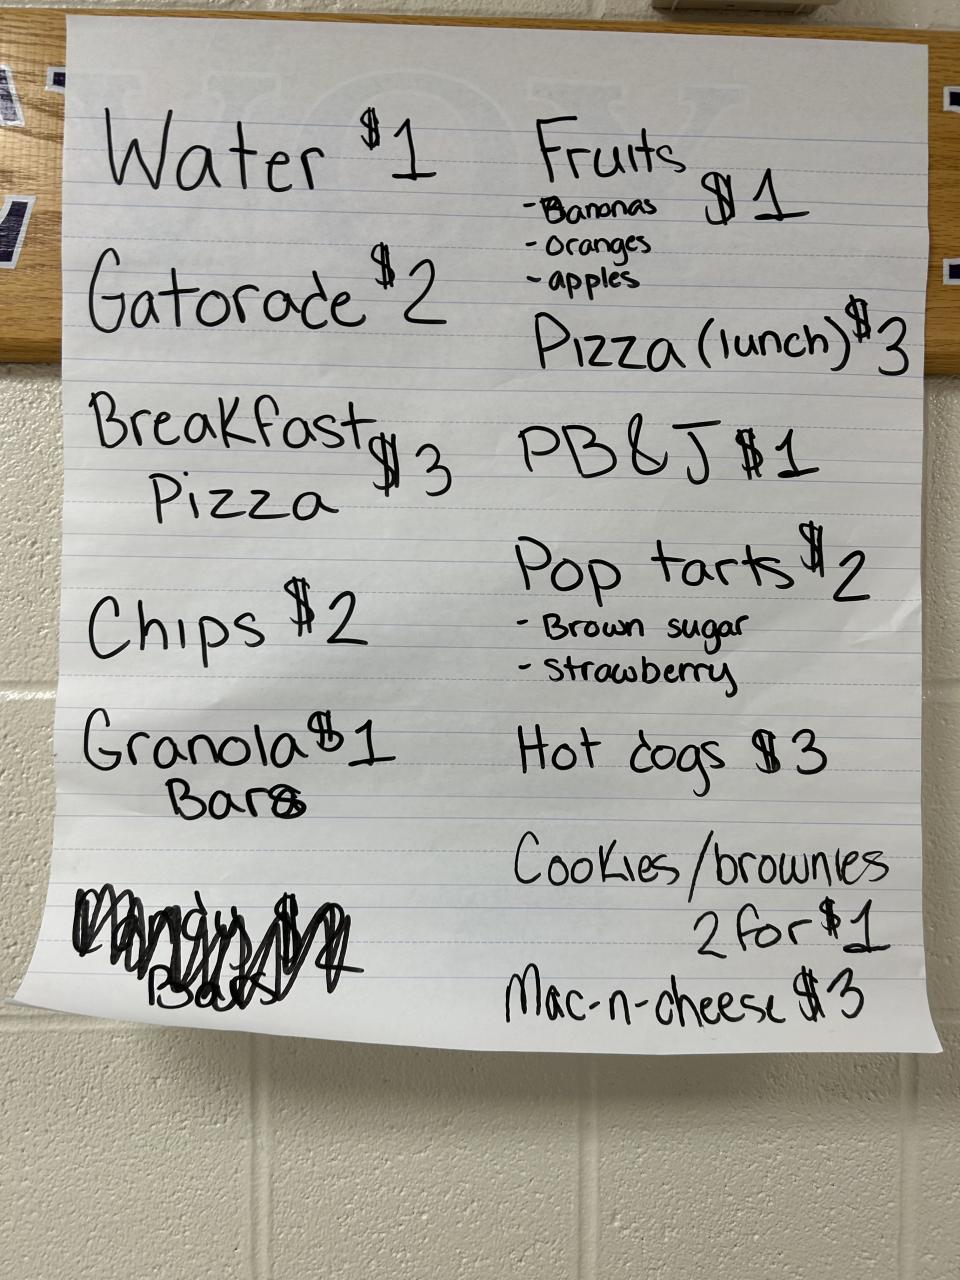 Water $1
Gatorade $2
Breakfast $3
Pizza
Chips $2
Granola $1
Bars
Bars
Fruits $1
- Bananas
- oranges
- apples
Pizza (lunch) $3
PB & J $1
Pop tarts $2
- Brown sugar
- Strawberry
Hot dogs $3
Cookies/brownies
2 for $1
Mac-n-cheese $3